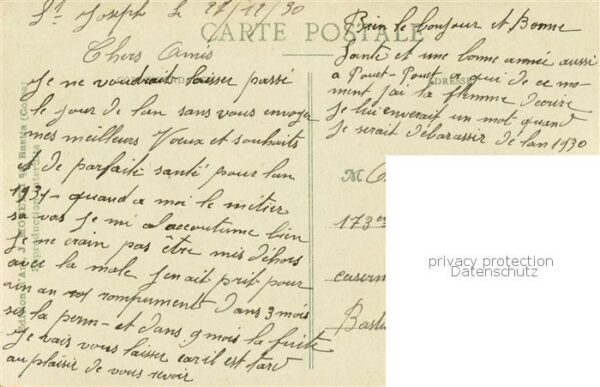 St Joseph Le 27/12/30
CARTE POSTALE
Chers Amis
Je ne voudrait laisser passé
le jour de lan sans vous envoyer
mes meilleurs Voeux et souhaits
et de parfaite santé pour lan
1931 - quand a moi le métier
sa vas je mi accoutume bien
Je ne crain pas être mis dehors
avec la male Jenait prit pour
un an rompument dans 3 mois
ses la perm - et dans 9 mois la fuite
Je vais vous laisser car il est tard
au plaisir de vous revoir
Bien le bonjour et Bonne
Santé et une bonne année aussi
a Pouet-Pouet a qui de ce mo-
ment j'ai la flemme décrire
je lui enverait un mot quand
je serait débarassir de lan 1930
ADRESSE
M
173e
caserne
Bastia
privacy protection
Datenschutz